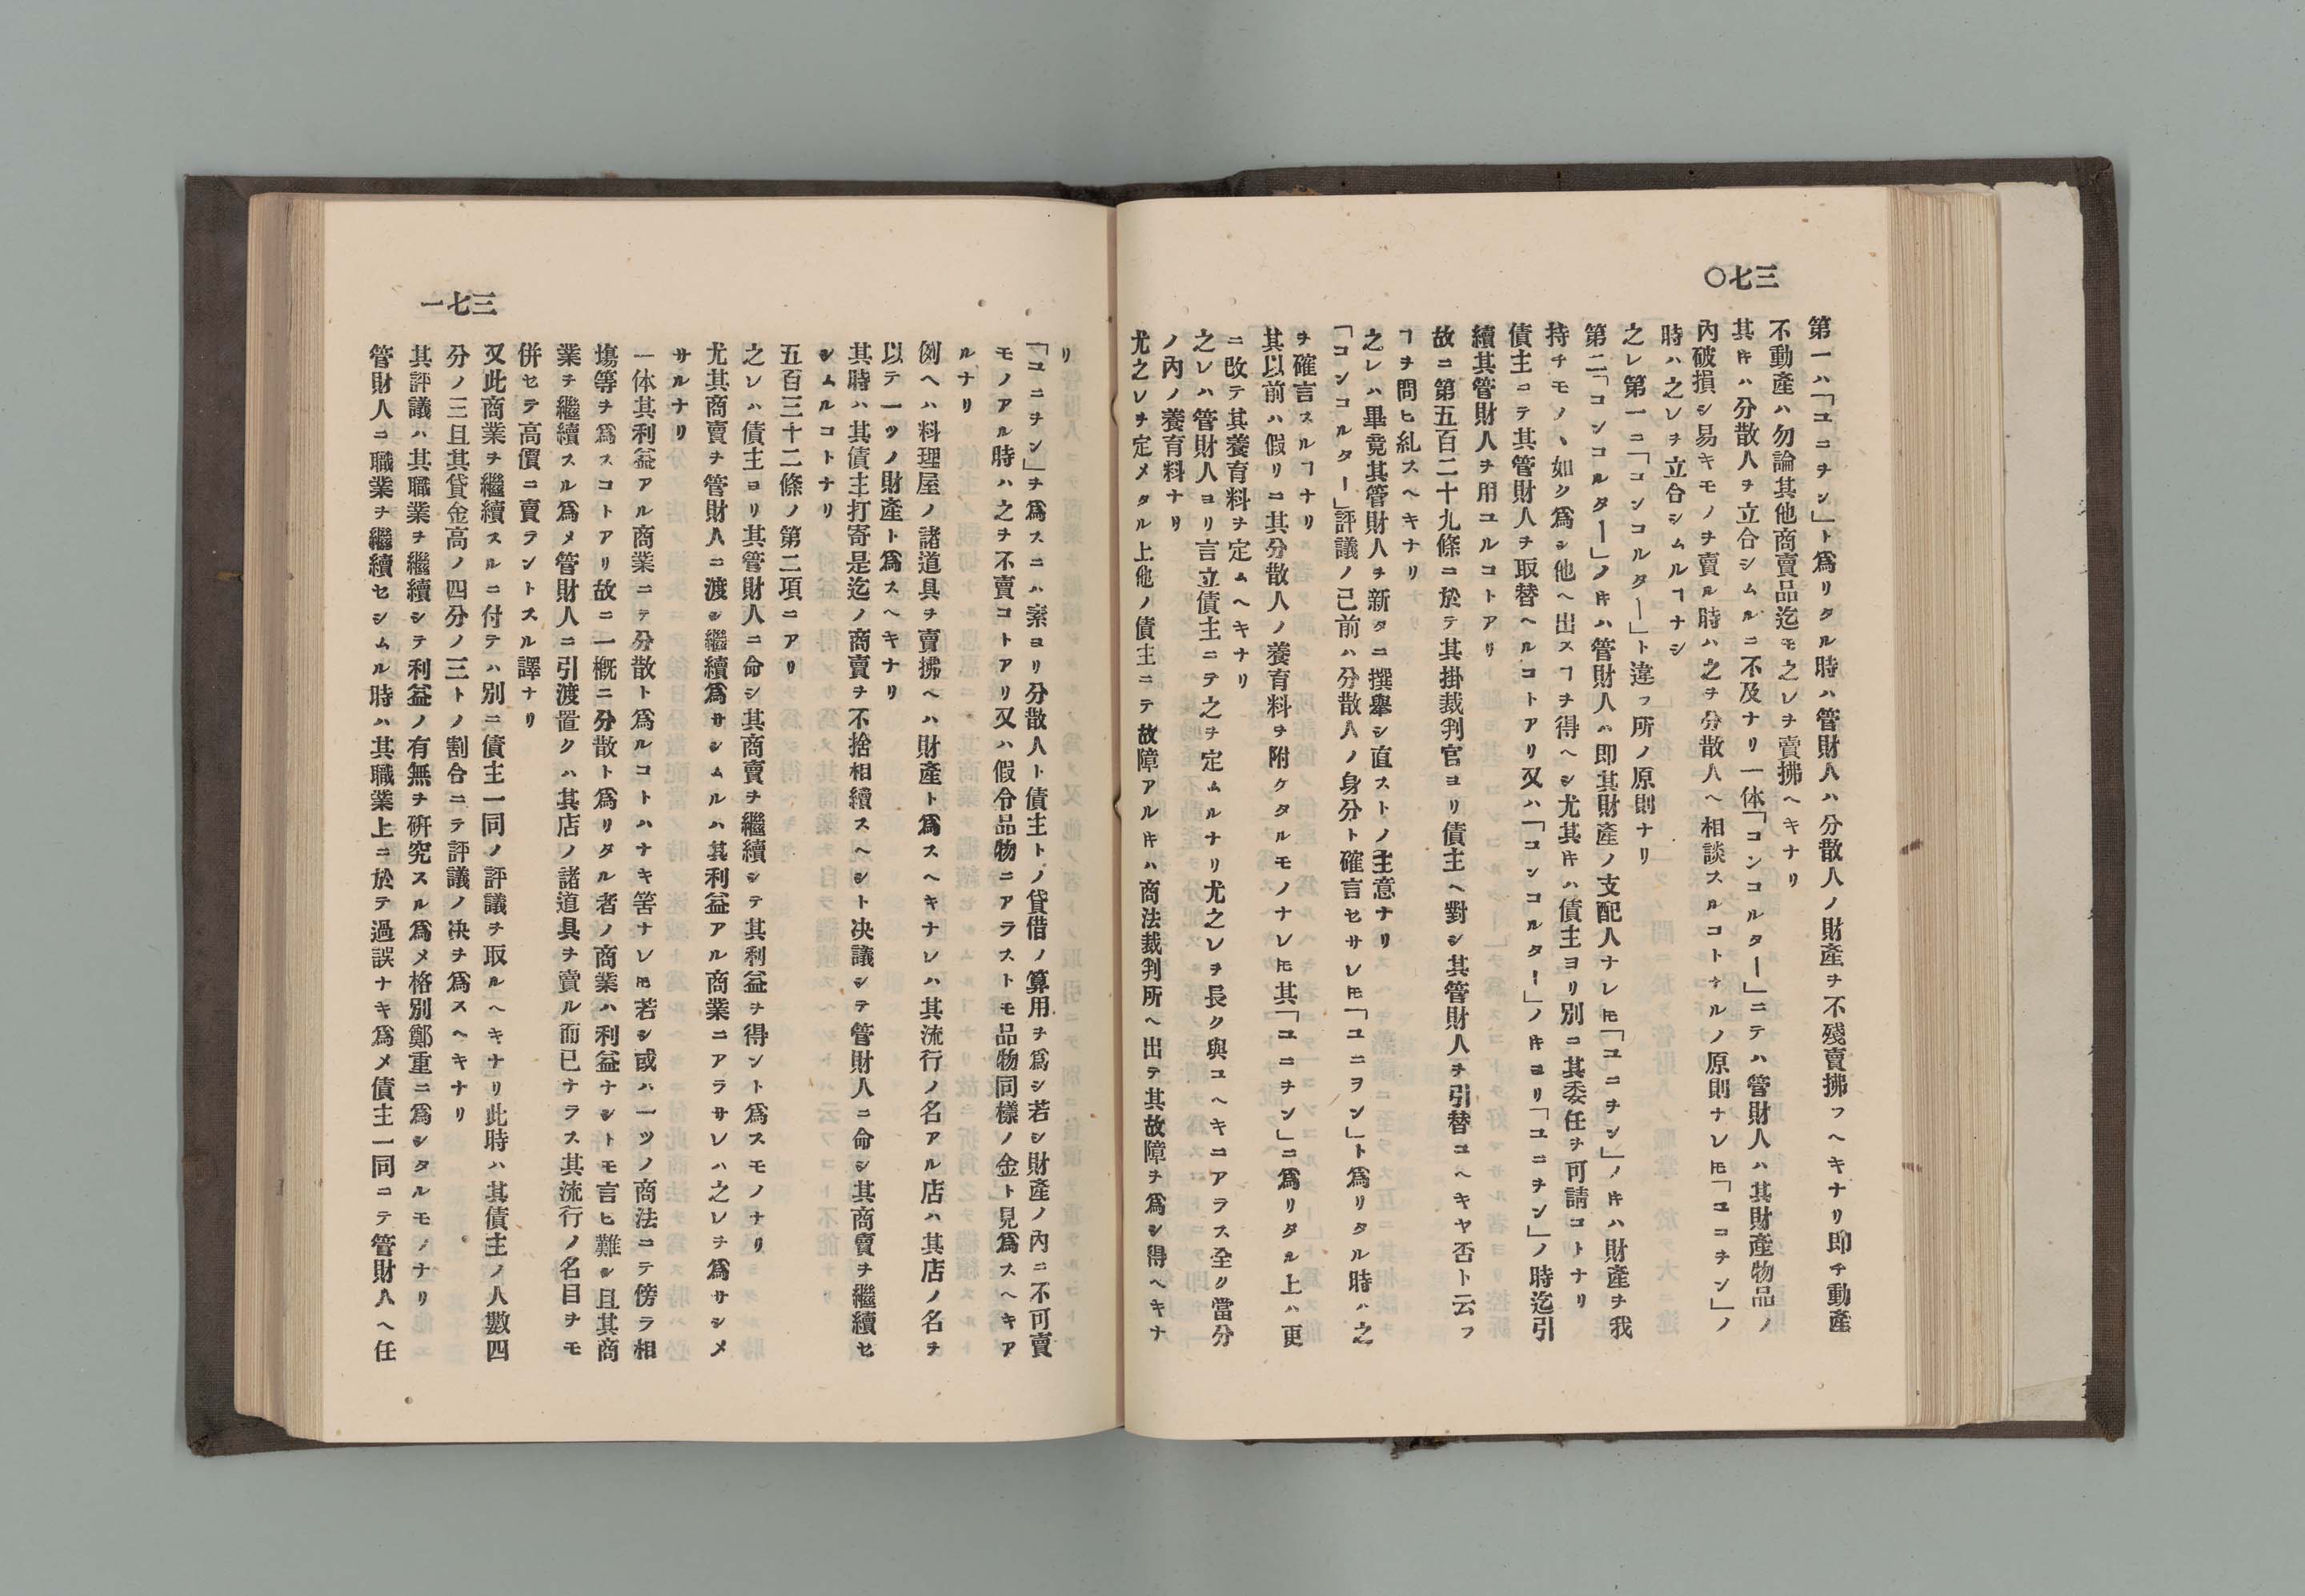 三七〇
第一ハ「ユニヲン」ト爲リタル時ハ管財人ハ分散人ノ財產ヲ不殘賣拂フヘキナリ即チ動產
不動產ハ勿論其他商賣品迄モ之レヲ賣拂ヘキナリ
其𪜈ハ分散人ヲ立合シムルニ不及ナリ一体「コンコルダー」ニテハ管財人ハ其財產物品ノ
內破損シ易キモノヲ賣ル時ハ之ヲ分散人ヘ相談スルコトナルノ原則ナレ𪜈「ユニヲン」ノ
時ハ之レヲ立合シムルヿナシ
之レ第一ニ「コンコルダー」ト違フ所ノ原則ナリ
第二「コンコルダー」ノ𪜈ハ管財人ハ即其財產ノ支配人ナレ𪜈「ユニヲン」ノ𪜈ハ財產ヲ我
持チモノヽ如ク爲シ他ヘ出スヿヲ得ヘシ尤其𪜈ハ債主ヨリ別ニ其委任ヲ可請コトナリ
債主ニテ其管財人ヲ取替ヘルコトアリ又ハ「コンコルダー」ノ𪜈ヨリ「ユニヲン」ノ時迄引
續其管財人ヲ用ユルコトアリ
故ニ第五百二十九條ニ於テ其掛裁判官ヨリ債主ヘ對シ其管財人ヲ引替ユヘキヤ否ト云フ
ヿヲ問ヒ糺スヘキナリ
之レハ畢竟其管財人ヲ新タニ撰擧シ直ストノ主意ナリ
「コンコルダー」評議ノ已前ハ分散人ノ身分ト確言セサレ𪜈「ユニヲン」ト爲リタル時ハ之
ヲ確言スルヿナリ
其以前ハ假リニ其分散人ノ養育料ヲ附ケタルモノナレ𪜈其「ユニヲン」ニ爲リタル上ハ更
ニ改テ其養育料ヲ定ムヘキナリ
之レハ管財人ヨリ言立債主ニテ之ヲ定ムルナリ尤之レヲ長ク與ユヘキニアラス全ク當分
ノ內ノ養育料ナリ
尤之レヲ定メタル上他ノ債主ニテ故障アル𪜈ハ商法裁判所ヘ出テ其故障ヲ爲シ得ヘキナ
三七一
リ
「ユニヲン」ヲ爲スニハ素ヨリ分散人ト債主トノ貸借ノ算用ヲ爲シ若シ財產ノ內ニ不可賣
モノアル時ハ之ヲ不賣コトアリ又ハ假令品物ニアラストモ品物同樣ノ金ト見爲スヘキア
ルナリ
例ヘハ料理屋ノ諸道具ヲ賣拂ヘハ財產ト爲スヘキナレハ其流行ノ名アル店ハ其店ノ名ヲ
以テ一ツノ財產ト爲スヘキナリ
其時ハ其債主打寄是迄ノ商賣ヲ不捨相續スヘシト决議シテ管財人ニ命シ其商賣ヲ繼續セ
シムルコトナリ
五百三十二條ノ第二項ニアリ
之レハ債主ヨリ其管財人ニ命シ其商賣ヲ繼續シテ其利益ヲ得ント爲スモノナリ
尤其商賣ヲ管財人ニ渡シ繼續爲サシムルハ其利益アル商業ニアラサレハ之レヲ爲サシメ
サルナリ
一体其利益アル商業ニテ分散ト爲ルコトハナキ筈ナレ𪜈若シ或ハ一ツノ商法ニテ傍ラ相
塲等ヲ爲スコトアリ故ニ一概ニ分散ト爲リタル者ノ商業ハ利益ナシトモ言ヒ難シ且其商
業ヲ繼續スル爲メ管財人ニ引渡置クハ其店ノ諸道具ヲ賣ル而已ナラス其流行ノ名目ヲモ
併セテ高價ニ賣ラントスル譯ナリ
又此商業ヲ繼續スルニ付テハ別ニ債主一同ノ評議ヲ取ルヘキナリ此時ハ其債主ノ人數四
分ノ三且其貸金高ノ四分ノ三トノ割合ニテ評議ノ决ヲ爲スヘキナリ
其評議ハ其職業ヲ繼續シテ利益ノ有無ヲ硏究スル爲メ格別鄭重ニ爲シタルモノナリ
管財人ニ職業ヲ繼續セシムル時ハ其職業上ニ於テ過誤ナキ爲メ債主一同ニテ管財人ヘ任